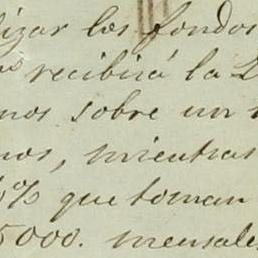 lizar los fondos
recibirá la
nos sobre un
nos, mientras
% que toman
5000. mensuales